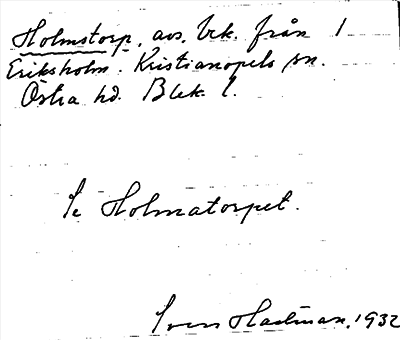 Holmstorp, avs. brk. från 1
Eriksholm. Kristianopels sn.
Östra hd. Blek. l.
Se Holmatorpet.
Sven Hartman, 1932